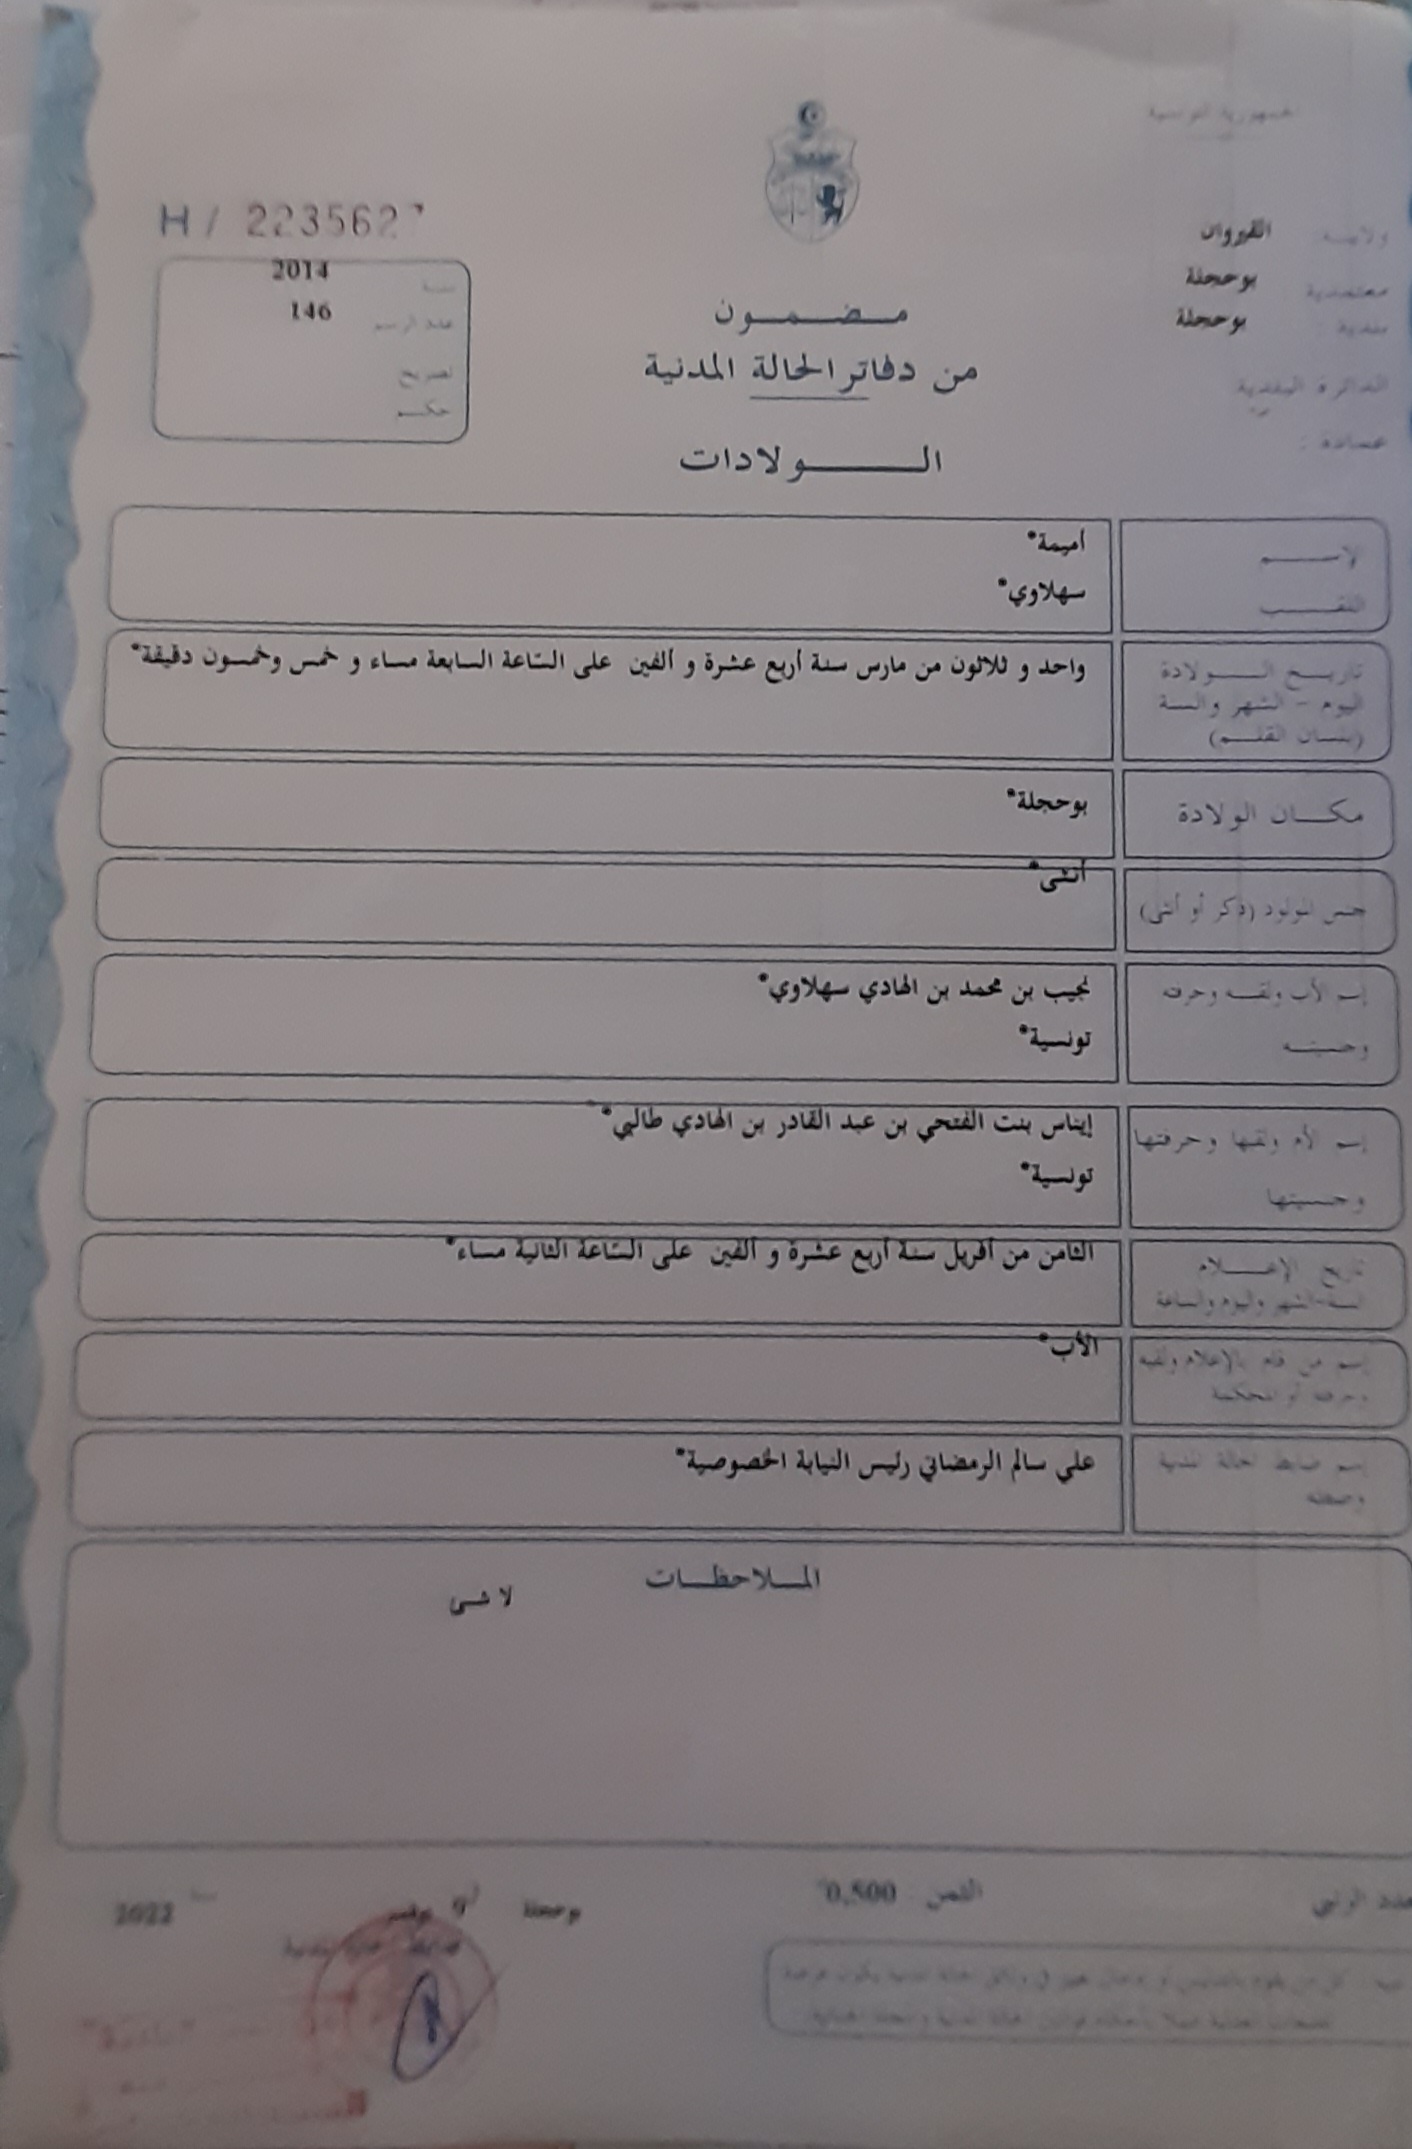 الجمهورية التونسية
ولايـــة القيروان
معتمدية بوحجلة
بلدية : بوحجلة
الدائرة البلدية
عمادة :
H / 223562
سنة 2014
عدد الرسم 146
تصريح
حكــم
مـضــمــون
من دفاتر الحالة المدنية
الـــــولادات
الإســـــم أميمة*
اللقـــب سهلاوي*
تاريـــخ الــــولادة واحد و ثلاثون من مارس سنة أربع عشرة و ألفين على الساعة السابعة مساء و خمس وخمسون دقيقة*
اليوم - الشهر والسنة
(بلسان القلــم)
مكــان الولادة بوحجلة*
جنس المولود (ذكر أو أنثى) أنثى*
إسم الأب ولقبــه وحرفته نجيب بن محمد بن الهادي سهلاوي*
وجنسيته تونسية*
إسم الأم ولقبها وحرفتها إيناس بنت الفتحي بن عبد القادر بن الهادي طالبي*
وجنسيتها تونسية*
تاريخ الإعـــلام الثامن من أفريل سنة أربع عشرة و ألفين على الساعة الثانية مساء*
السنة-الشهر واليوم والساعة
إسم من قام بالإعلام ولقبه الأب*
وحرفته أو المحكمة
إسم ضابط الحالة المدنية علي سالم الرمضاني رئيس النيابة الخصوصية*
وصفته
المــلاحظــات
لا شى
عدد الرتبي الثمن 0,500
بوحجلة 9 نوفمبر سنة 2022
ضابط الحالة المدنية